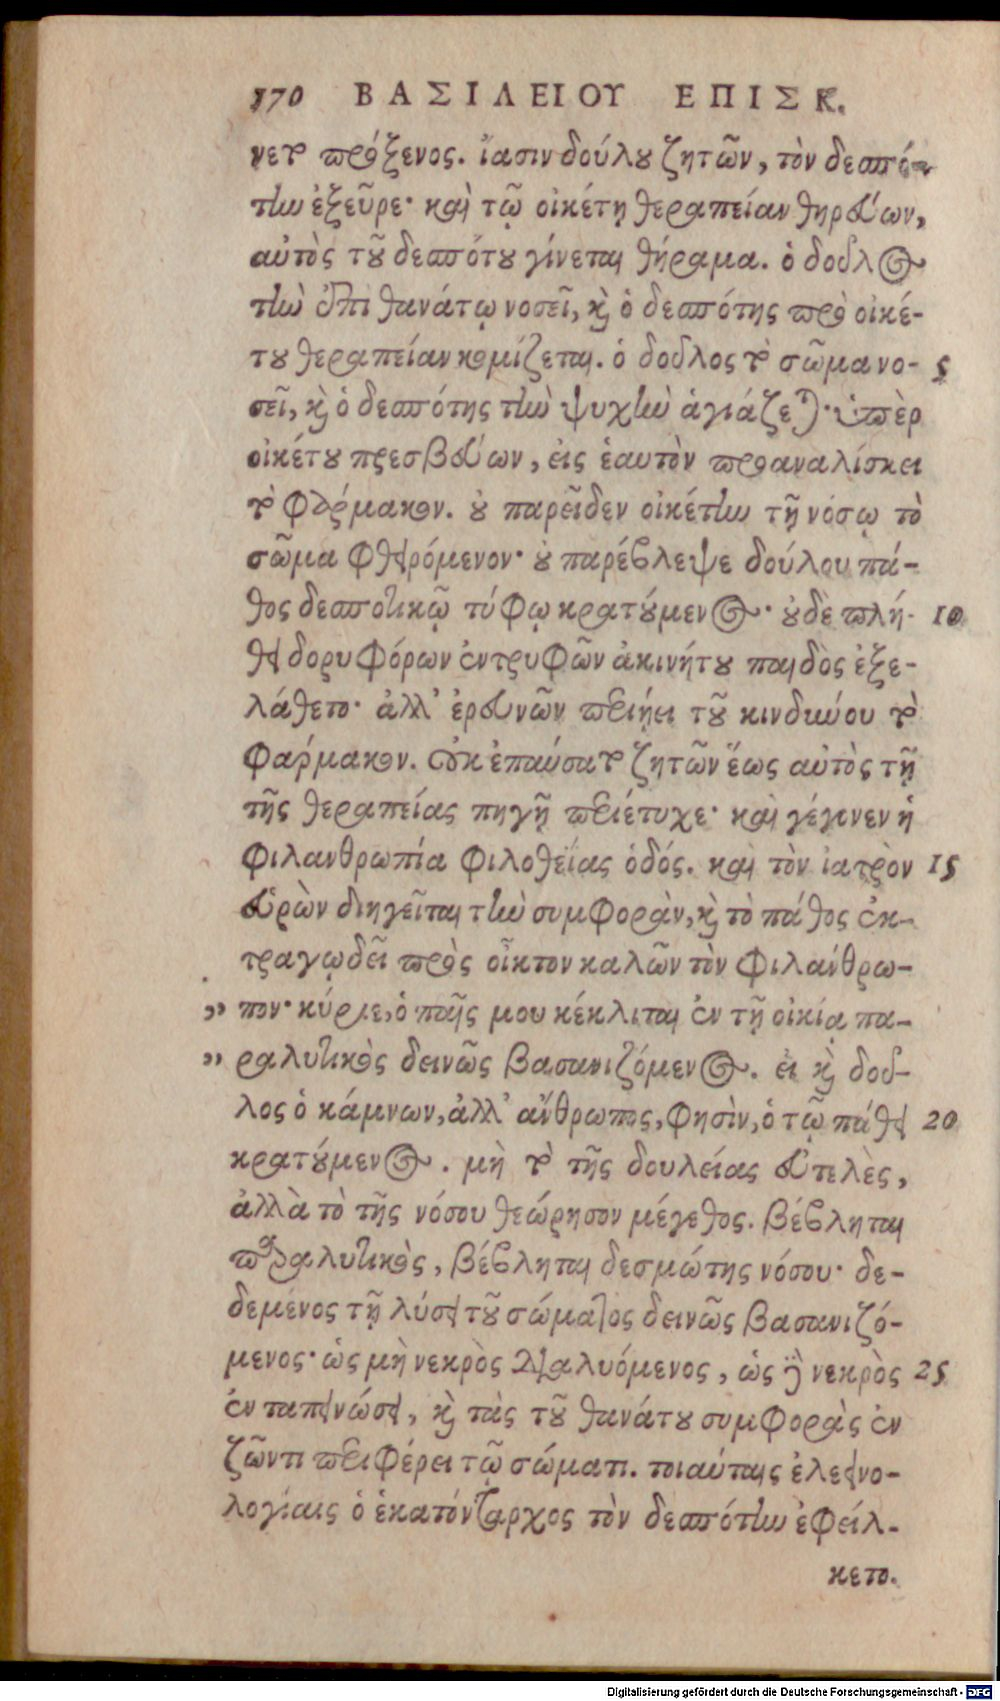 170 ΒΑΣΙΛΕΙΟΥ ΕΠΙΣΚ.
νετο πρόξενος. ἴασιν δούλου ζητῶν, τὸν δεσπό-
την ἐξεῦρε· καὶ τῷ οἰκέτῃ θεραπείαν θηρεύων,
αὐτὸς τοῦ δεσπότου γίνεται θήραμα. ὁ δοῦλος
τὴν ἐπὶ θανάτῳ νοσεῖ, καὶ ὁ δεσπότης πρὸ οἰκέ-
του θεραπείαν κομίζεται. ὁ δοῦλος τὸ σῶμα νο- 5
σεῖ, καὶ ὁ δεσπότης τὴν ψυχὴν ἁγιάζεται· ὑπὲρ
οἰκέτου πρεσβεύων, εἰς ἑαυτὸν προαναλίσκει
τὸ φάρμακον. οὐ παρεῖδεν οἰκέτην τῇ νόσῳ τὸ
σῶμα φθειρόμενον· οὐ παρέβλεψε δούλου πά-
θος δεσποτικῷ τύφῳ κρατούμενος· οὐδὲ πλή- 10
θει δορυφόρων ἐντρυφῶν ἀκινήτου παιδὸς ἐξε-
λάθετο· ἀλλ' ἐρευνῶν περιῄει τοῦ κινδύνου τὸ
φάρμακον. Οὐκ ἐπαύσατο ζητῶν ἕως αὐτὸς τῇ
τῆς θεραπείας πηγῇ περιέτυχε· καὶ γέγονεν ἡ
φιλανθρωπία φιλοθεΐας ὁδός. καὶ τὸν ἰατρὸν 15
εὑρὼν διηγεῖται τὴν συμφορὰν, καὶ τὸ πάθος ἐκ-
τραγῳδεῖ πρὸς οἶκτον καλῶν τὸν φιλάνθρω-
„ πον· κύριε, ὁ παῖς μου κέκλιται ἐν τῇ οἰκίᾳ πα-
„ ραλυτικὸς δεινῶς βασανιζόμενος. εἰ καὶ δοῦ-
λος ὁ κάμνων, ἀλλ' ἄνθρωπος, φησὶν, ὁ τῷ πάθει 20
κρατούμενος. μὴ τὸ τῆς δουλείας εὐτελὲς,
ἀλλὰ τὸ τῆς νόσου θεώρησον μέγεθος. βέβληται
παραλυτικὸς, βέβληται δεσμώτης νόσου· δε-
δεμένος τῇ λύσει τοῦ σώματος δεινῶς βασανιζό-
μενος· ὡς μὴ νεκρὸς διαλυόμενος, ὡς δὲ νεκρὸς 25
ἐν ταπεινώσει, καὶ τὰς τοῦ θανάτου συμφορὰς ἐν
ζῶντι περιφέρει τῷ σώματι. τοιαύταις ἐλεεινο-
λογίαις ὁ ἑκατόνταρχος τὸν δεσπότην ἐφείλ-
κετο.
Digitalisierung gefördert durch die Deutsche Forschungsgemeinschaft - DFG